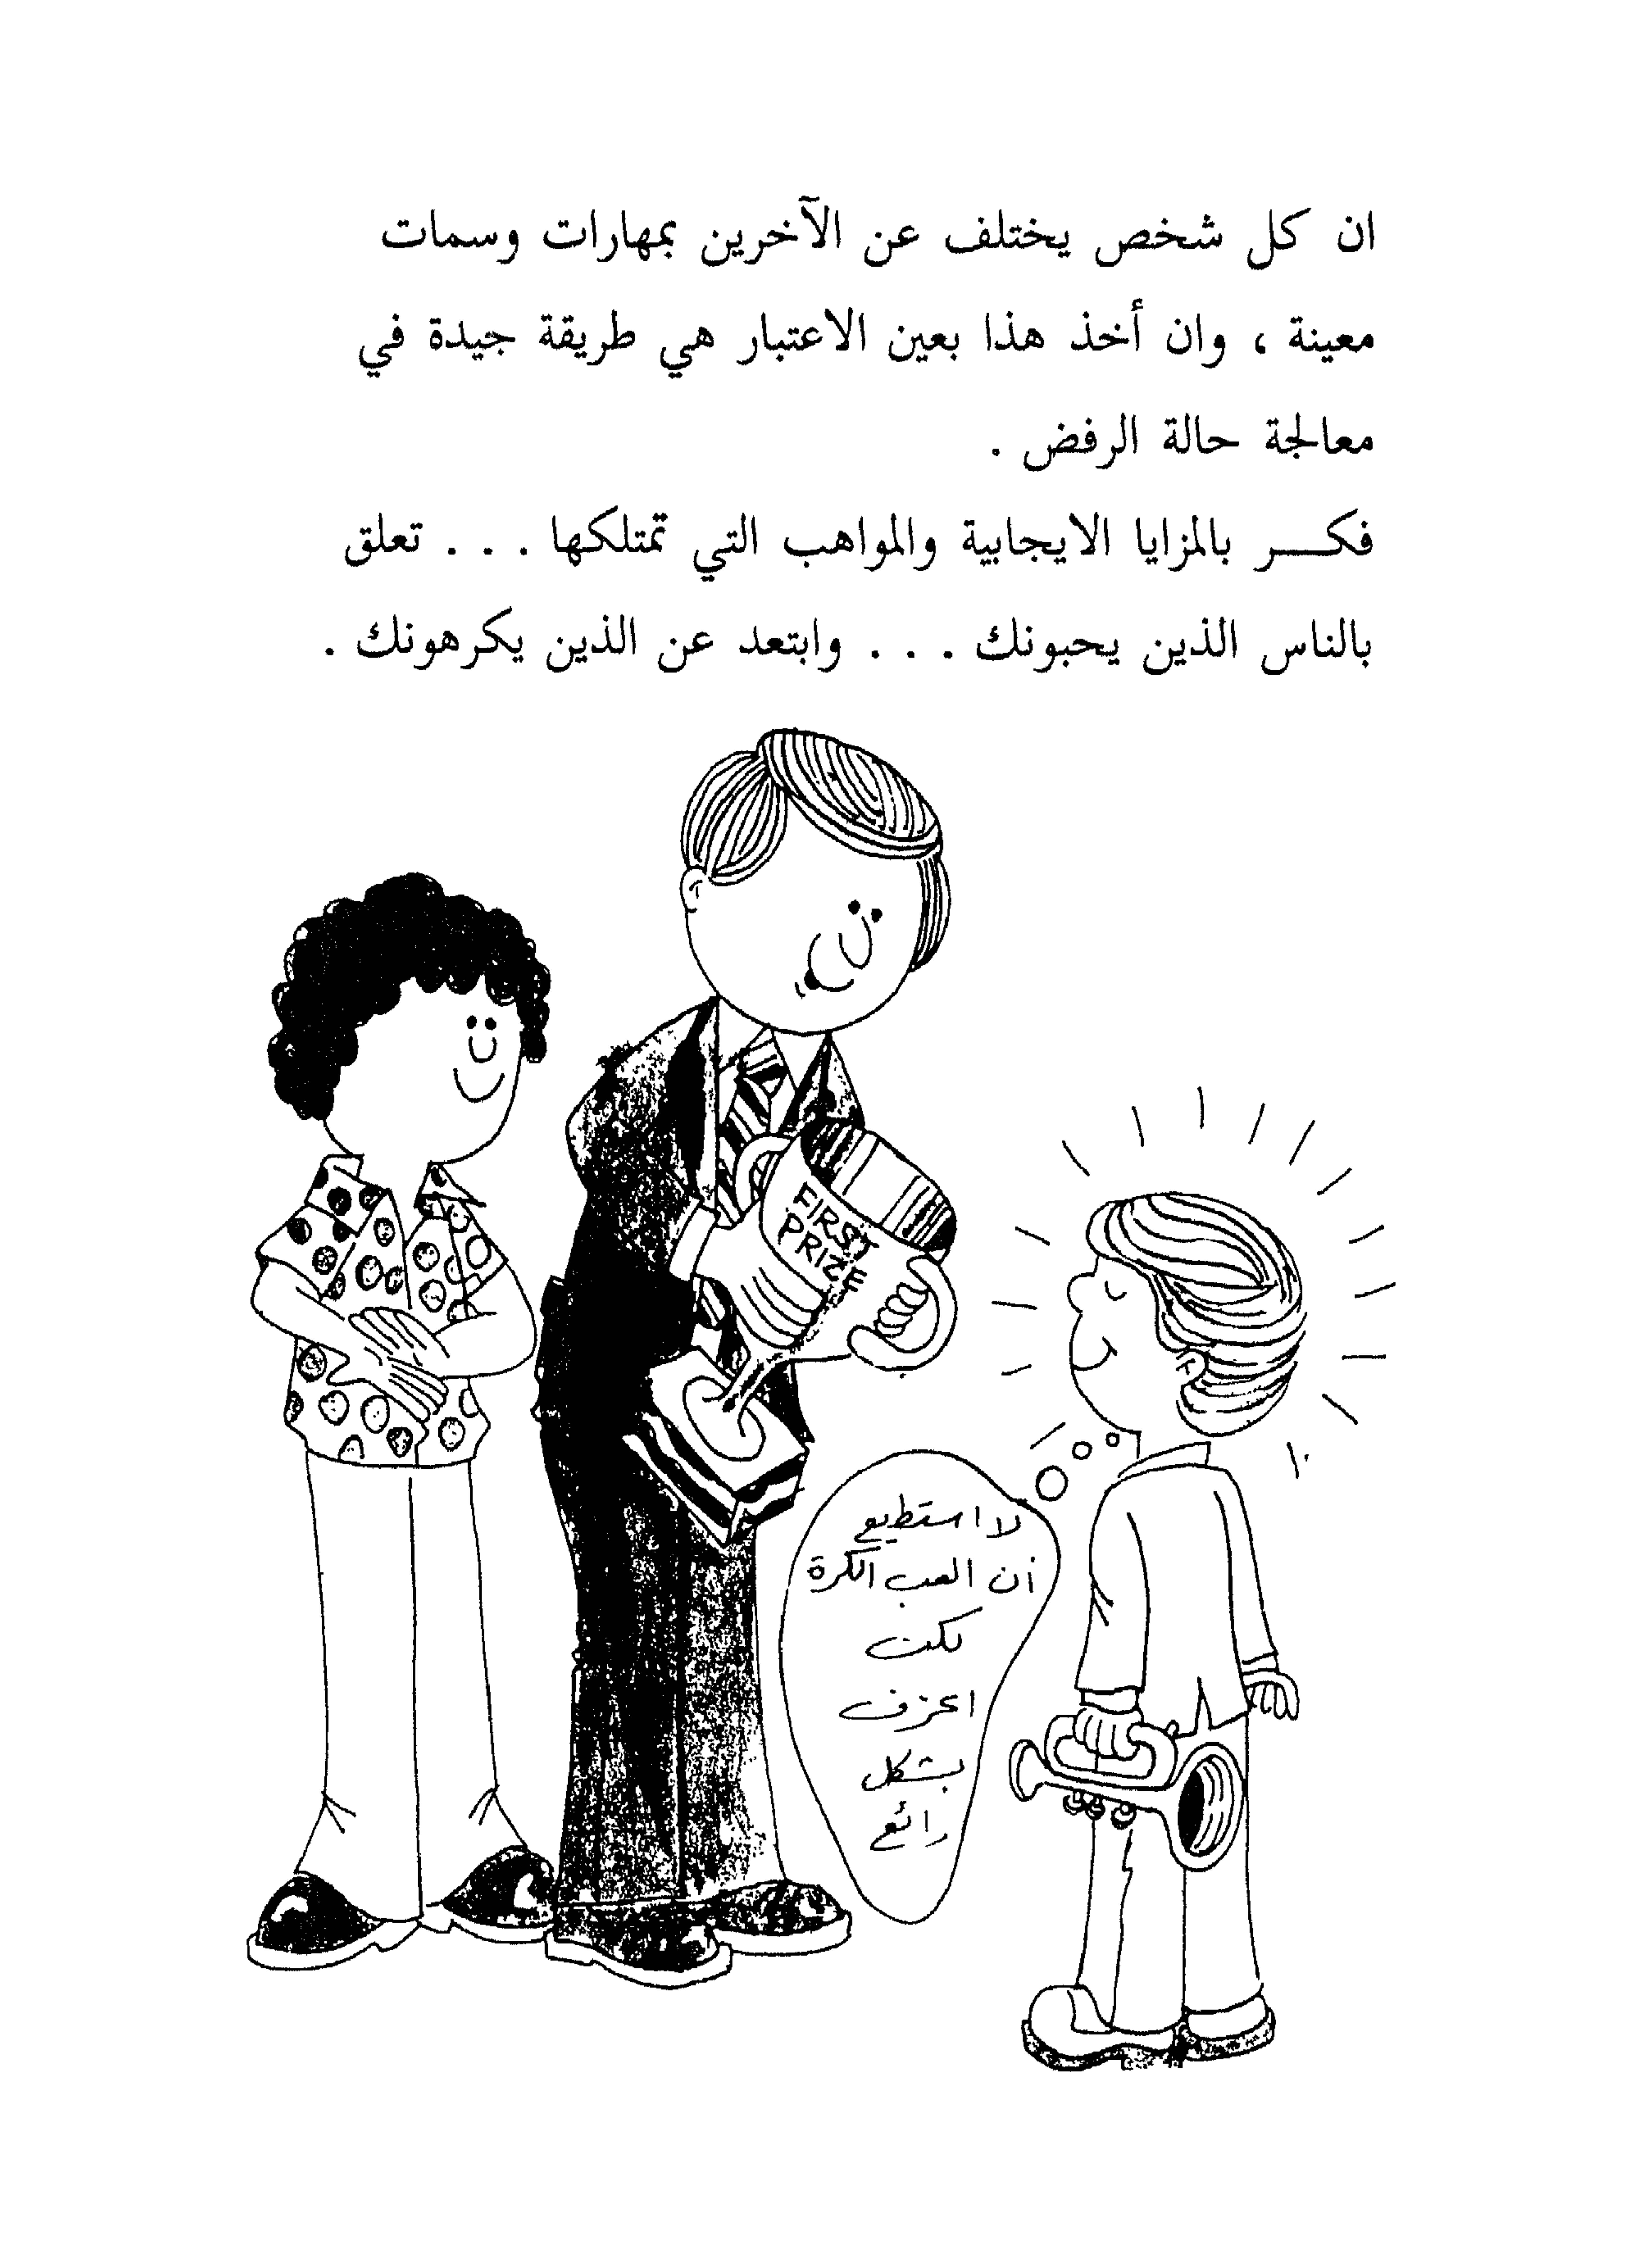 ان كل شخص يختلف عن الآخرين بمهارات وسمات
معينة ، وان أخذ هذا بعين الاعتبار هي طريقة جيدة في
معالجة حالة الرفض .
فكـــر بالمزايا الايجابية والمواهب التي تمتلكها . . . تعلق
بالناس الذين يحبونك . . . وابتعد عن الذين يكرهونك .
FIRST
PRIZE
لا استطيع
أن العب الكرة
لكن
اعزف
بشكل
رائع